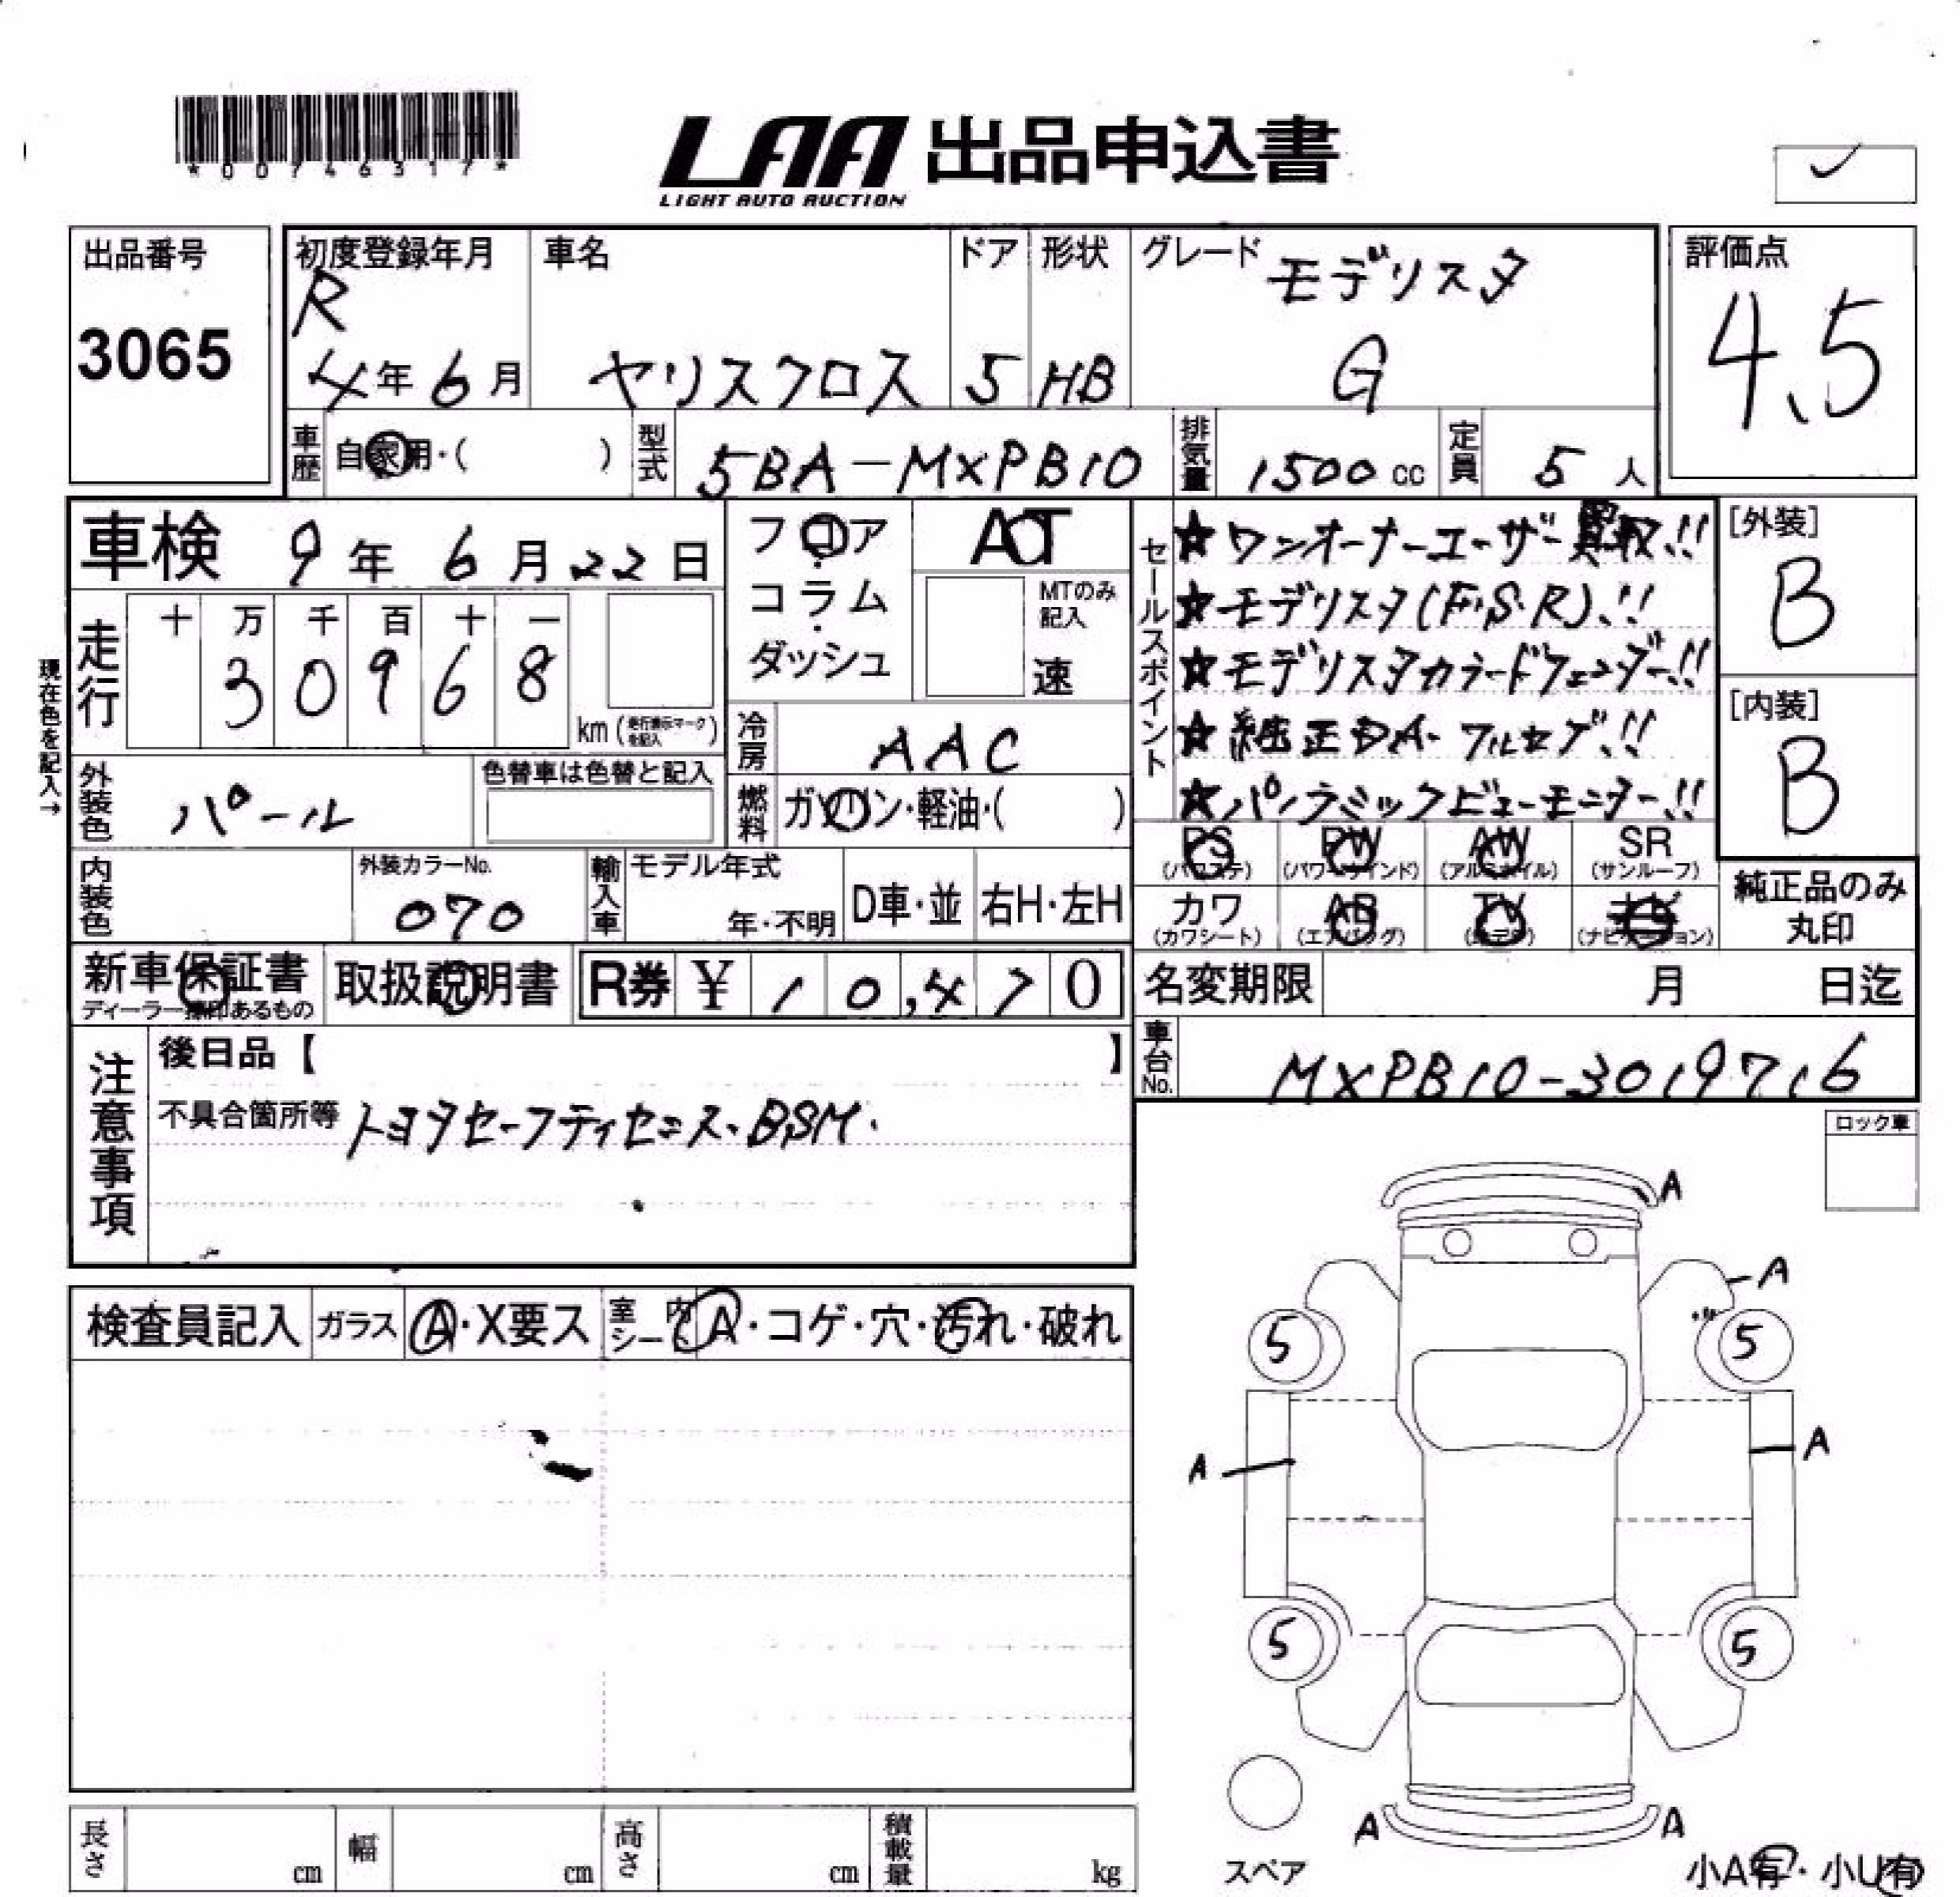 *00746317*
LAA 出品申込書
LIGHT AUTO AUCTION
出品番号
3065
初度登録年月
R
4年6月
車名
ヤリスクロス
ドア
5
形状
HB
グレード モデリスタ
G
評価点
4.5
車歴 自家用・( )
型式 5BA-MXPB10
排気量 1500cc
定員 5人
車検 9年6月22日
フロア
コラム
ダッシュ
AT
MTのみ
記入
速
セールスポイント
★ワンオーナーユーザー買取!!
★モデリスタ(F.S.R).!!
★モデリスタカラードフェンダー!!
★純正DA.フルセグ.!!
★パノラミックビューモニター!!
[外装]
B
[内装]
B
現在色を記入→
走行
十 万 千 百 十 一
3 0 9 6 8
km (走行表示マークを記入)
冷房 AAC
外装色 パール
色替車は色替と記入
燃料 ガソリン・軽油・( )
PS (パワステ)
PW (パワーウインド)
AW (アルミホイル)
SR (サンルーフ)
カワ (カワシート)
AB (エアバッグ)
TV
ナビ (ナビゲーション)
純正品のみ
丸印
内装色
外装カラーNo.
070
輸入車
モデル年式
年・不明
D車・並
右H・左H
新車保証書
ディーラー捺印あるもの
取扱説明書
R券 ¥ 10,470
名変期限 月 日迄
車台No. MXPB10-3019716
注意事項
後日品【 】
不具合箇所等 トヨタセーフティセンス.BSM.
ロック車
検査員記入
ガラス A・X要ス
室内シート A・コゲ・穴・汚れ・破れ
A
A
5
5
A
A
5
5
A
A
スペア
小A有・小U有
長さ cm
幅 cm
高さ cm
積載量 kg